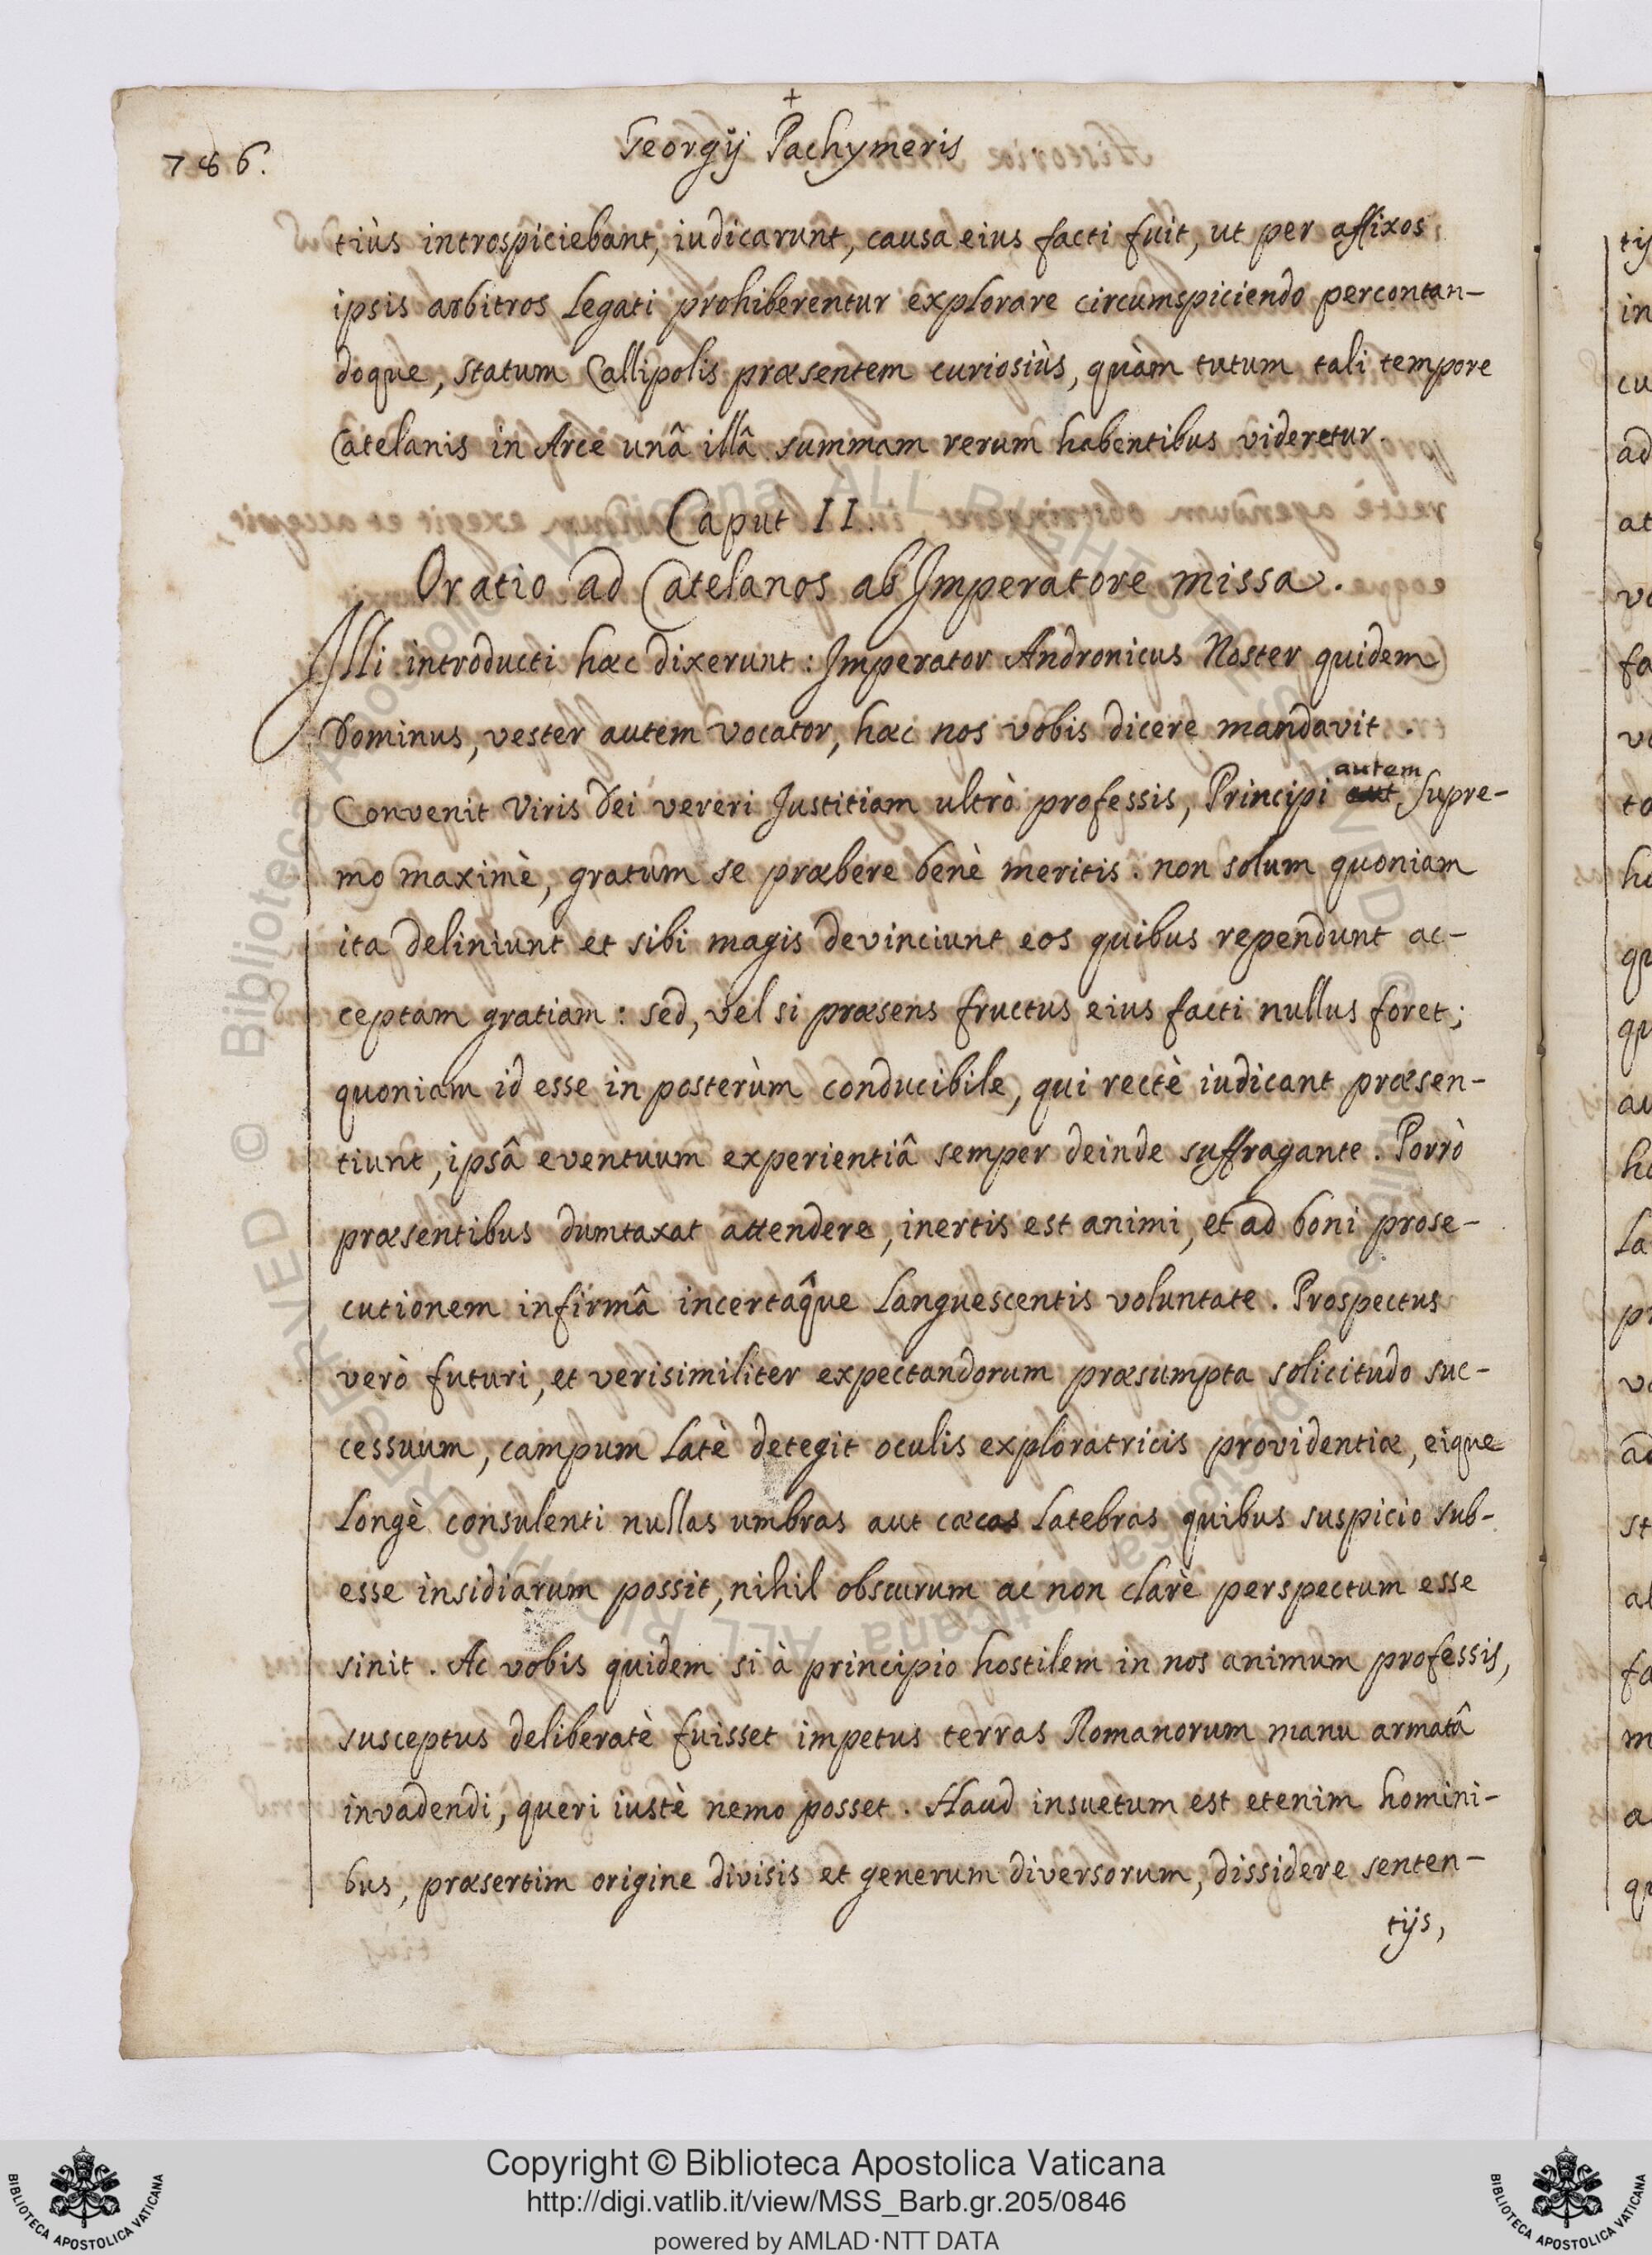 +
786. Georgÿ Pachymeris
tiùs introspiciebant, iudicarunt, causa eius facti fuit, ut per affixos
ipsis arbitros Legati prohiberentur explorare circumspiciendo percontan-
doque, statum Callipolis præsentem curiosiùs, quàm tutum tali tempore
Catelanis in Arce unâ illâ summam rerum habentibus videretur.
Caput II.
Oratio ad Catelanos ab Imperatore missa.
Illi introducti hæc dixerunt: Imperator Andronicus Noster quidem
Dominus, vester autem vocator, hæc nos vobis dicere mandavit.
autem
Convenit Viris Dei vereri Justitiam ultrò professis, Principi aut Supre-
mo maximè, gratum se præbere benè meritis. non solum quoniam
ita deliniunt et sibi magis devinciunt eos quibus rependunt ac-
ceptam gratiam: sed, vel si præsens fructus eius facti nullus foret;
quoniam id esse in posterùm conducibile, qui rectè iudicant præsen-
tiunt, ipsâ eventuum experientiâ semper deinde suffragante. Porrò
præsentibus dumtaxat attendere, inertis est animi, et ad boni prose-
cutionem infirmâ incertâque languescentis voluntate. Prospectus
verò futuri, et verisimiliter expectandorum præsumpta solicitudo suc-
cessuum, campum latè detegit oculis exploratricis providentiæ, eique
longè consulenti nullas umbras aut cæcas latebras quibus suspicio sub-
esse insidiarum possit, nihil obscurum ac non clarè perspectum esse
sinit. Ac vobis quidem si à principio hostilem in nos animum professis,
susceptus deliberatè fuisset impetus terras Romanorum manu armatâ
invadendi, queri iustè nemo posset. Haud insuetum est etenim homini-
bus, præsertim origine divisis et generum diversorum, dissidere senten-
tijs,
Copyright © Biblioteca Apostolica Vaticana
http://digi.vatlib.it/view/MSS_Barb.gr.205/0846
powered by AMLAD·NTT DATA
BIBLIOTECA APOSTOLICA VATICANA
BIBLIOTECA APOSTOLICA VATICANA